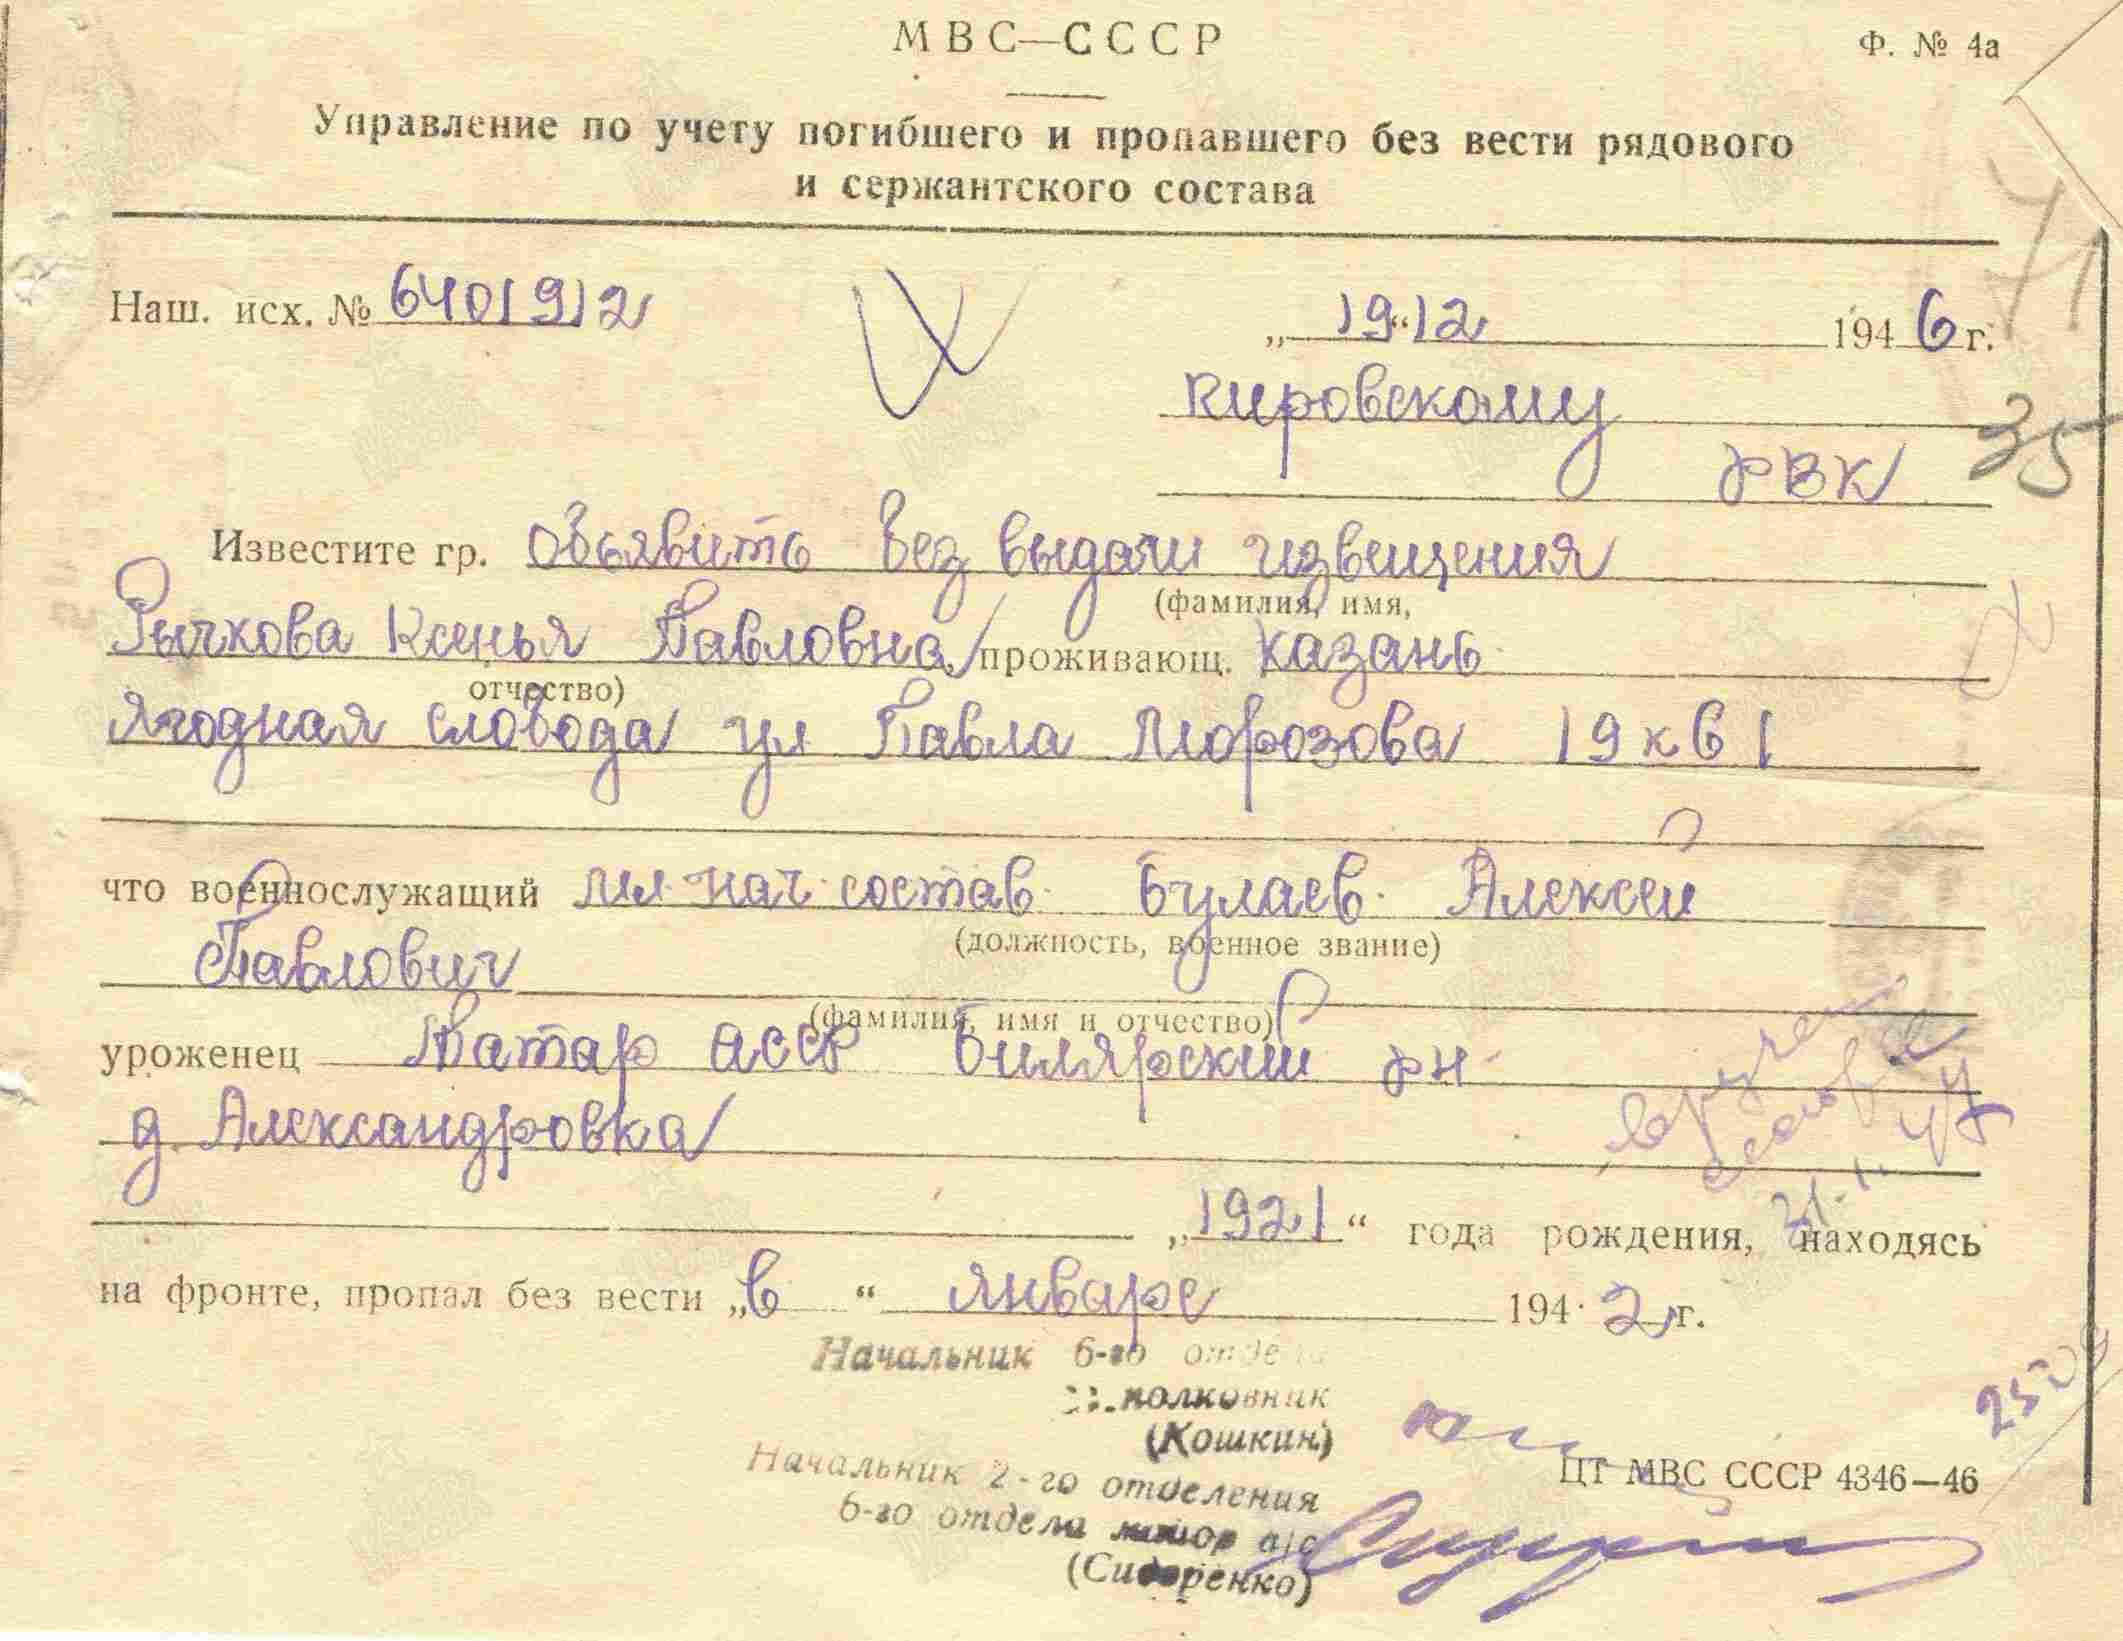 МВС—СССР
Ф. № 4а
Управление по учету погибшего и пропавшего без вести рядового
и сержантского состава
71
Наш. исх. № 6401912
„19“ 12 1946 г.
Кировскому
РВК
35
Известите гр. объявить без выдачи извещения
(фамилия, имя,
Рычкова Ксенья Павловна проживающ. Казань
отчество)
Ягодная слобода ул Павла Морозова 19 кв 1
что военнослужащий мл. нач. состав. Булаев Алексей
(должность, военное звание)
Павлович
(фамилия, имя и отчество)
уроженец Татар АССР Билярский рн
д. Александровка
вручен
„1921“ года рождения, находясь
на фронте, пропал без вести „в“ январе 1942 г.
Начальник 6-го отдела
полковник
(Кошкин)
Начальник 2-го отделения
6-го отдела майор а/с
(Сидоренко)
ЦТ МВС СССР 4346—46